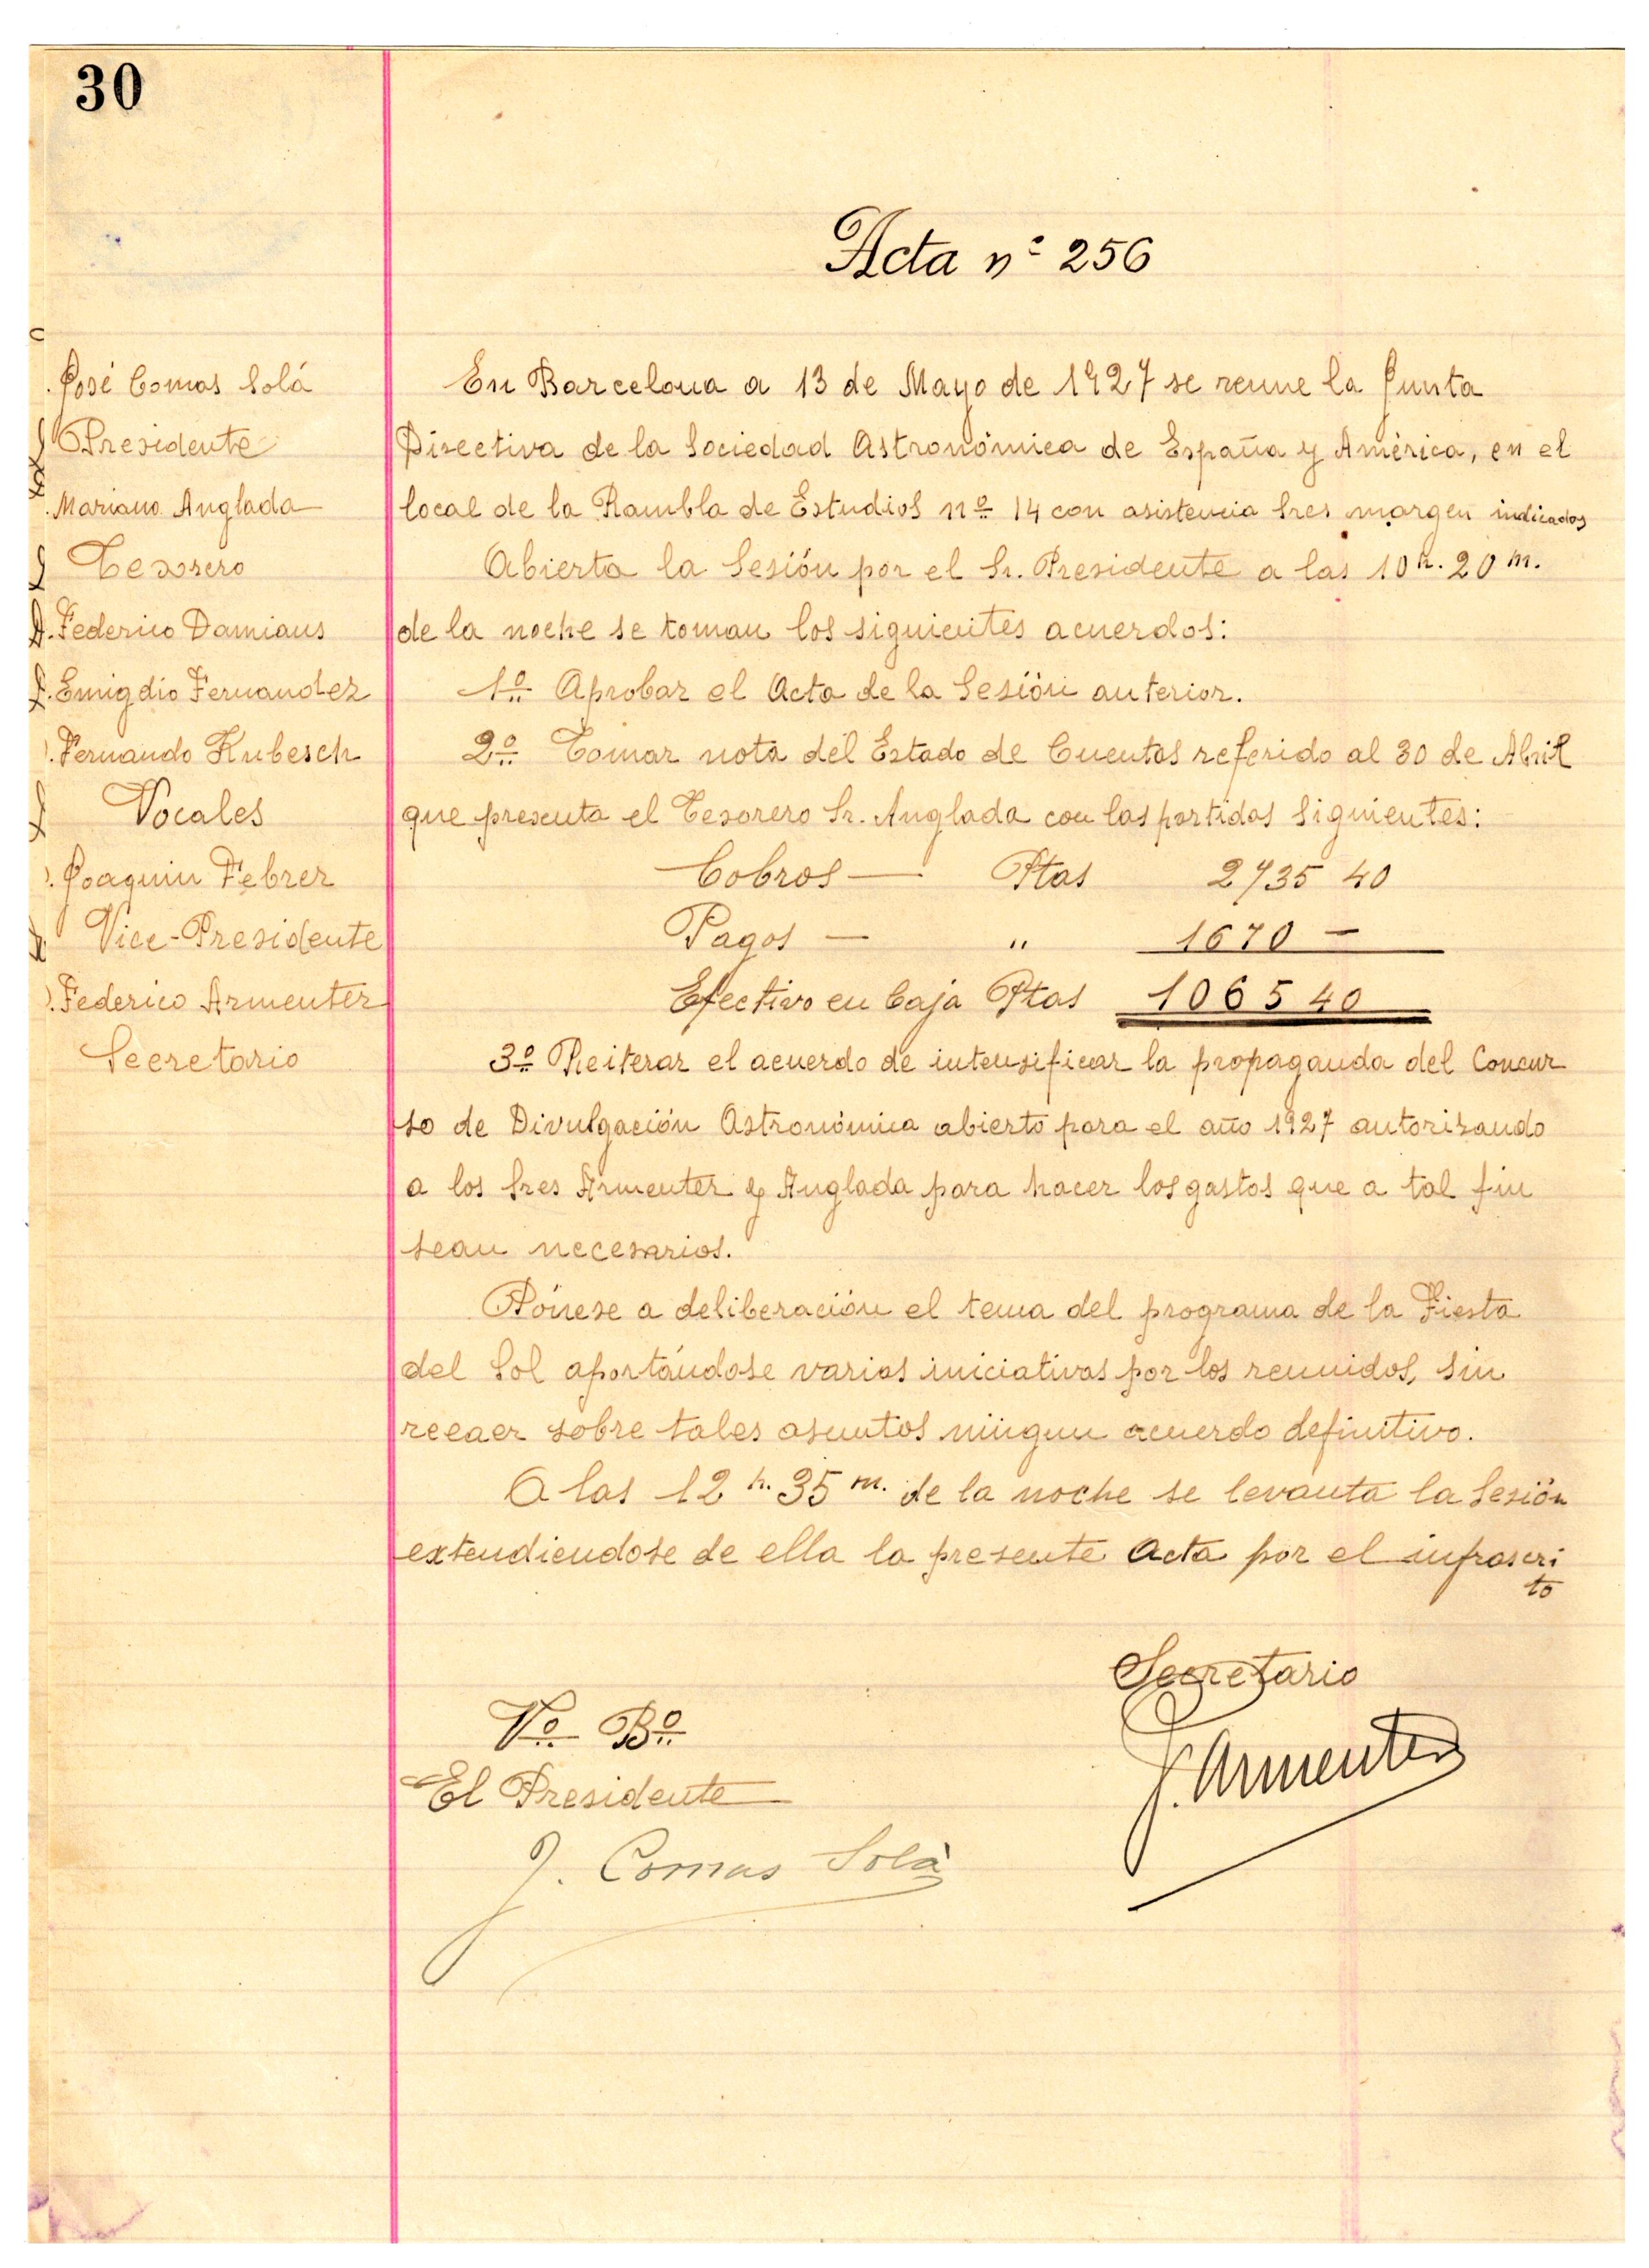 30
Acta nº 256
José Comas Solá
Presidente
Mariano Anglada
Tesorero
D. Federico Damians
D. Emigdio Fernandez
Fernando Kubesch
Vocales
Joaquin Febrer
Vice-Presidente
Federico Armenter
Secretario
En Barcelona a 13 de Mayo de 1927 se reune la Junta
Directiva de la Sociedad Astronómica de España y América, en el
local de la Rambla de Estudios nº 14 con asistencia Sres margen indicados
Abierta la Sesión por el Sr. Presidente a las 10 h. 20 m.
de la noche se toman los siguientes acuerdos:
1º Aprobar el Acta de la Sesión anterior.
2º Tomar nota del Estado de Cuentas referido al 30 de Abril
que presenta el Tesorero Sr. Anglada con las partidas siguientes:
Cobros — Ptas 2735 40
Pagos — " 1670 —
Efectivo en Caja Ptas 1065 40
3º Reiterar el acuerdo de intensificar la propaganda del Concur
so de Divulgación Astronómica abierto para el año 1927 autorizando
a los Sres Armenter y Anglada para hacer los gastos que a tal fin
sean necesarios.
Pónese a deliberación el tema del programa de la Fiesta
del Sol aportándose varias iniciativas por los reunidos, sin
recaer sobre tales asuntos ningun acuerdo definitivo.
A las 12 h. 35 m. de la noche se levanta la Sesión
extendiendose de ella la presente Acta por el infrascri
to
Secretario
F. Armenter
Vº Bº
El Presidente
J. Comas Solà